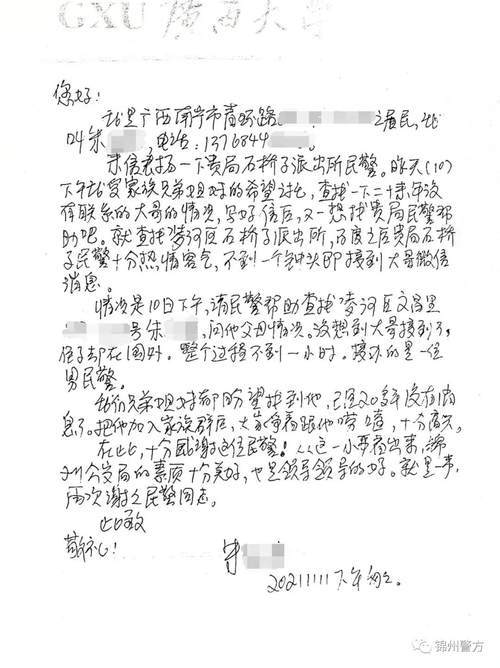 GXU 广西大学
您好！
我是广西南宁市青环路 之居民，我
叫朱 ，电话：1376844 。
来信表扬一下贵局石桥子派出所民警。昨天（10）
下午我受家族兄弟姐妹的希望讨论，查找一下二十来年没
有联系的大哥的情况，写好信后，又一想找贵局民警帮
助吧。就查找凌河区石桥子派出所，百度之后贵局石桥
子民警十分热情客气，不到一个钟头即接到大哥微信
消息。
情况是10日下午，请民警帮助查找凌河区文昌里
号朱 ，问他父母情况。没想到大哥接到了，
侄子却在国外。整个过程不到一小时。接听的是一位
男民警。
我们兄弟姐妹都盼望找到他，已经20多年没有消
息了。把他加入家族群后，大家争着跟他唠嗑，十分高兴。
在此，十分感谢这位民警！从这一小事看出来，锦
州公安局的素质十分美好，也是领导领导的好。就是一事，
再次谢谢民警同志。
此致
敬礼！ 朱
20211111下午
锦州警方